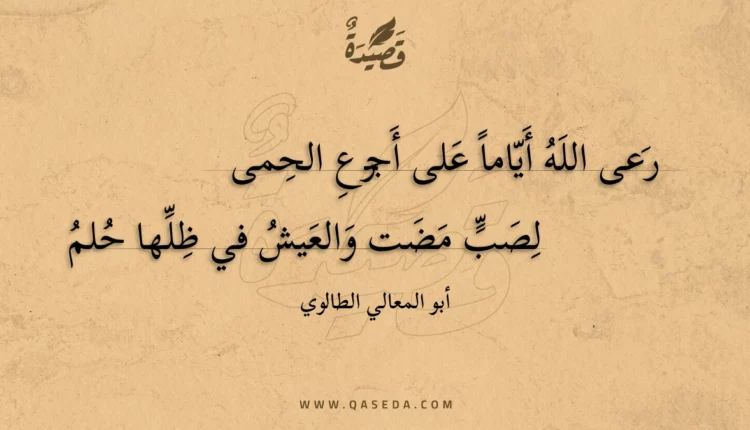 قَصِيْدَةٌ
رَعى اللَهُ أَيّاماً عَلى أَجرُعِ الحِمى
لِصَبٍّ مَضَت وَالعَيشُ في ظِلِّها حُلمُ
أبو المعالي الطالوي
WWW.QASEDA.COM